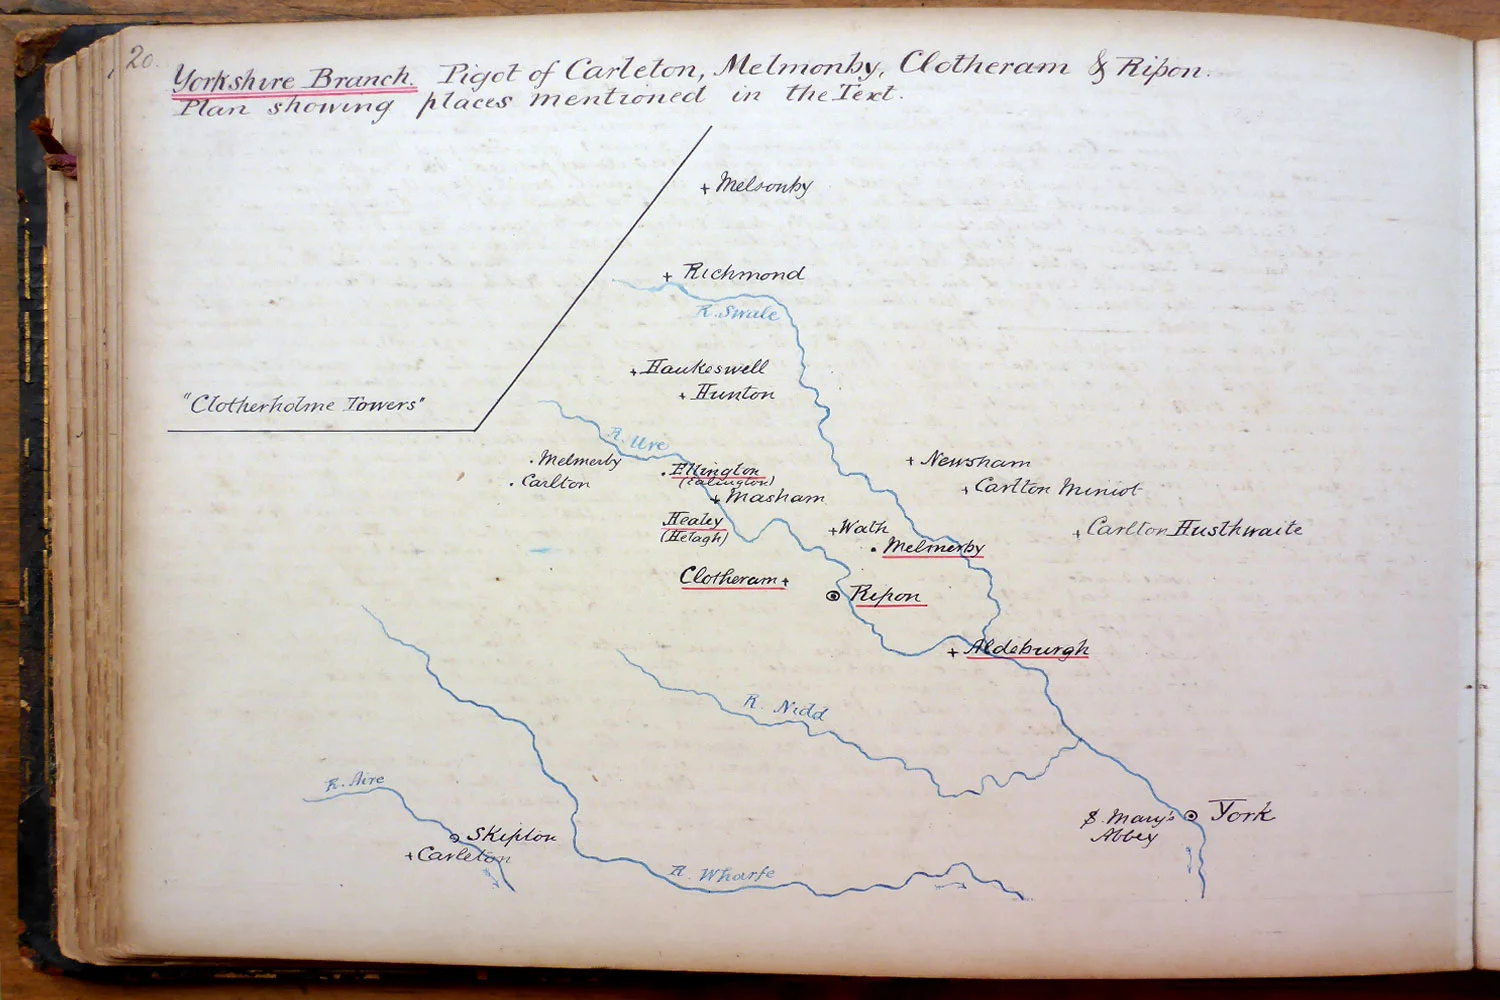 20.
Yorkshire Branch. Pigot of Carleton, Melmonby, Clotheram & Ripon.
Plan showing places mentioned in the Text.
+ Melsonby
+ Richmond
R. Swale
"Clotherholme Towers"
+ Haukeswell
+ Hunton
R. Ure
. Melmerby
. Carlton
. Ellington
(Ealington)
+ Masham
+ Newsham
+ Carlton Miniot
Healey
(Helagh)
+ Wath
. Melmerby
+ Carlton Husthwaite
Clotheram +
Ripon
+ Aldeburgh
R. Nidd
R. Aire
Skipton
+ Carleton
R. Wharfe
S. Mary's
Abbey
York